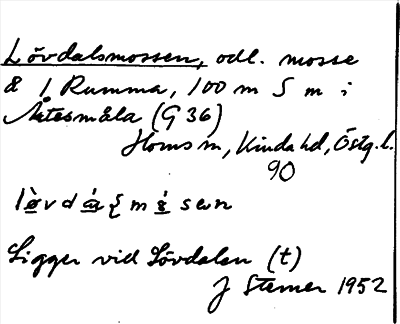 Lövdalsmossen, odl. mosse
& / Rumma, 100 m S m i
Åtesmåla (G 36)
Horns m, Kinda hd, Östg. l.
90
Ligger vid Lövdalen (t)
J Stemer 1952